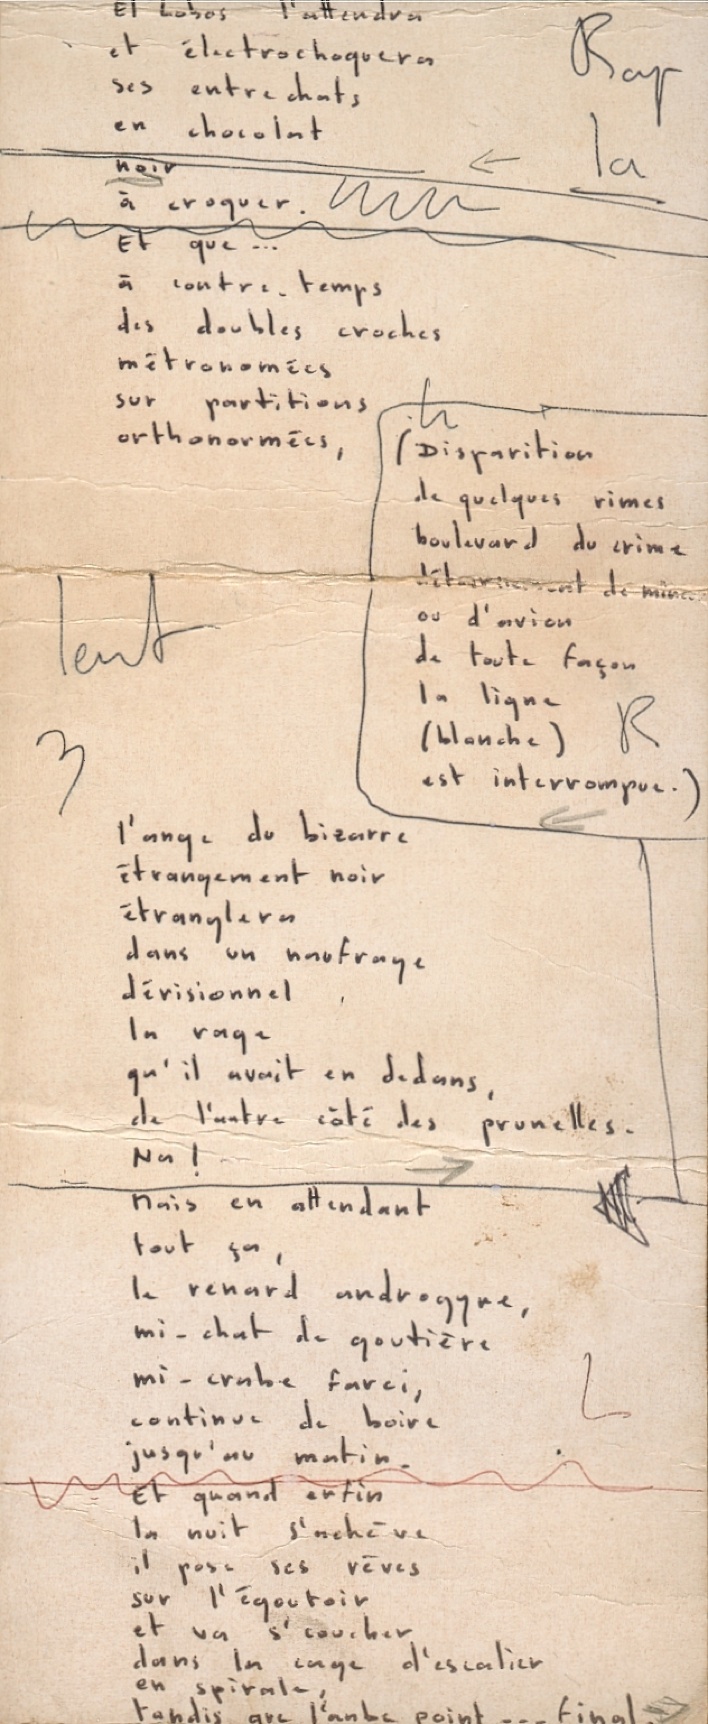 Et Lobos l'attendra
et électrochoquera
ses entrechats
en chocolat
noir
à croquer.
Rap
la
Et que...
à contre-temps
des doubles croches
métronomées
sur partitions
orthonormées,
(Disparition
de quelques rimes
boulevard du crime
de
ou d'avion
de toute façon
la ligne
(blanche)
est interrompue.)
R
lent
3
l'ange du bizarre
étrangement noir
étranglera
dans un naufrage
dérisionnel
la rage
qu'il avait en dedans,
de l'autre côté des prunelles.
Na!
Mais en attendant
tout ça,
le renard androgyne,
mi-chat de goutière
mi-crabe farci,
continue de boire
jusqu'au matin.
L
Et quand enfin
la nuit s'achève
il pose ses rêves
sur l'égoutoir
et va s'coucher
dans la cage d'escalier
en spirale,
tandis que l'aube point --- final